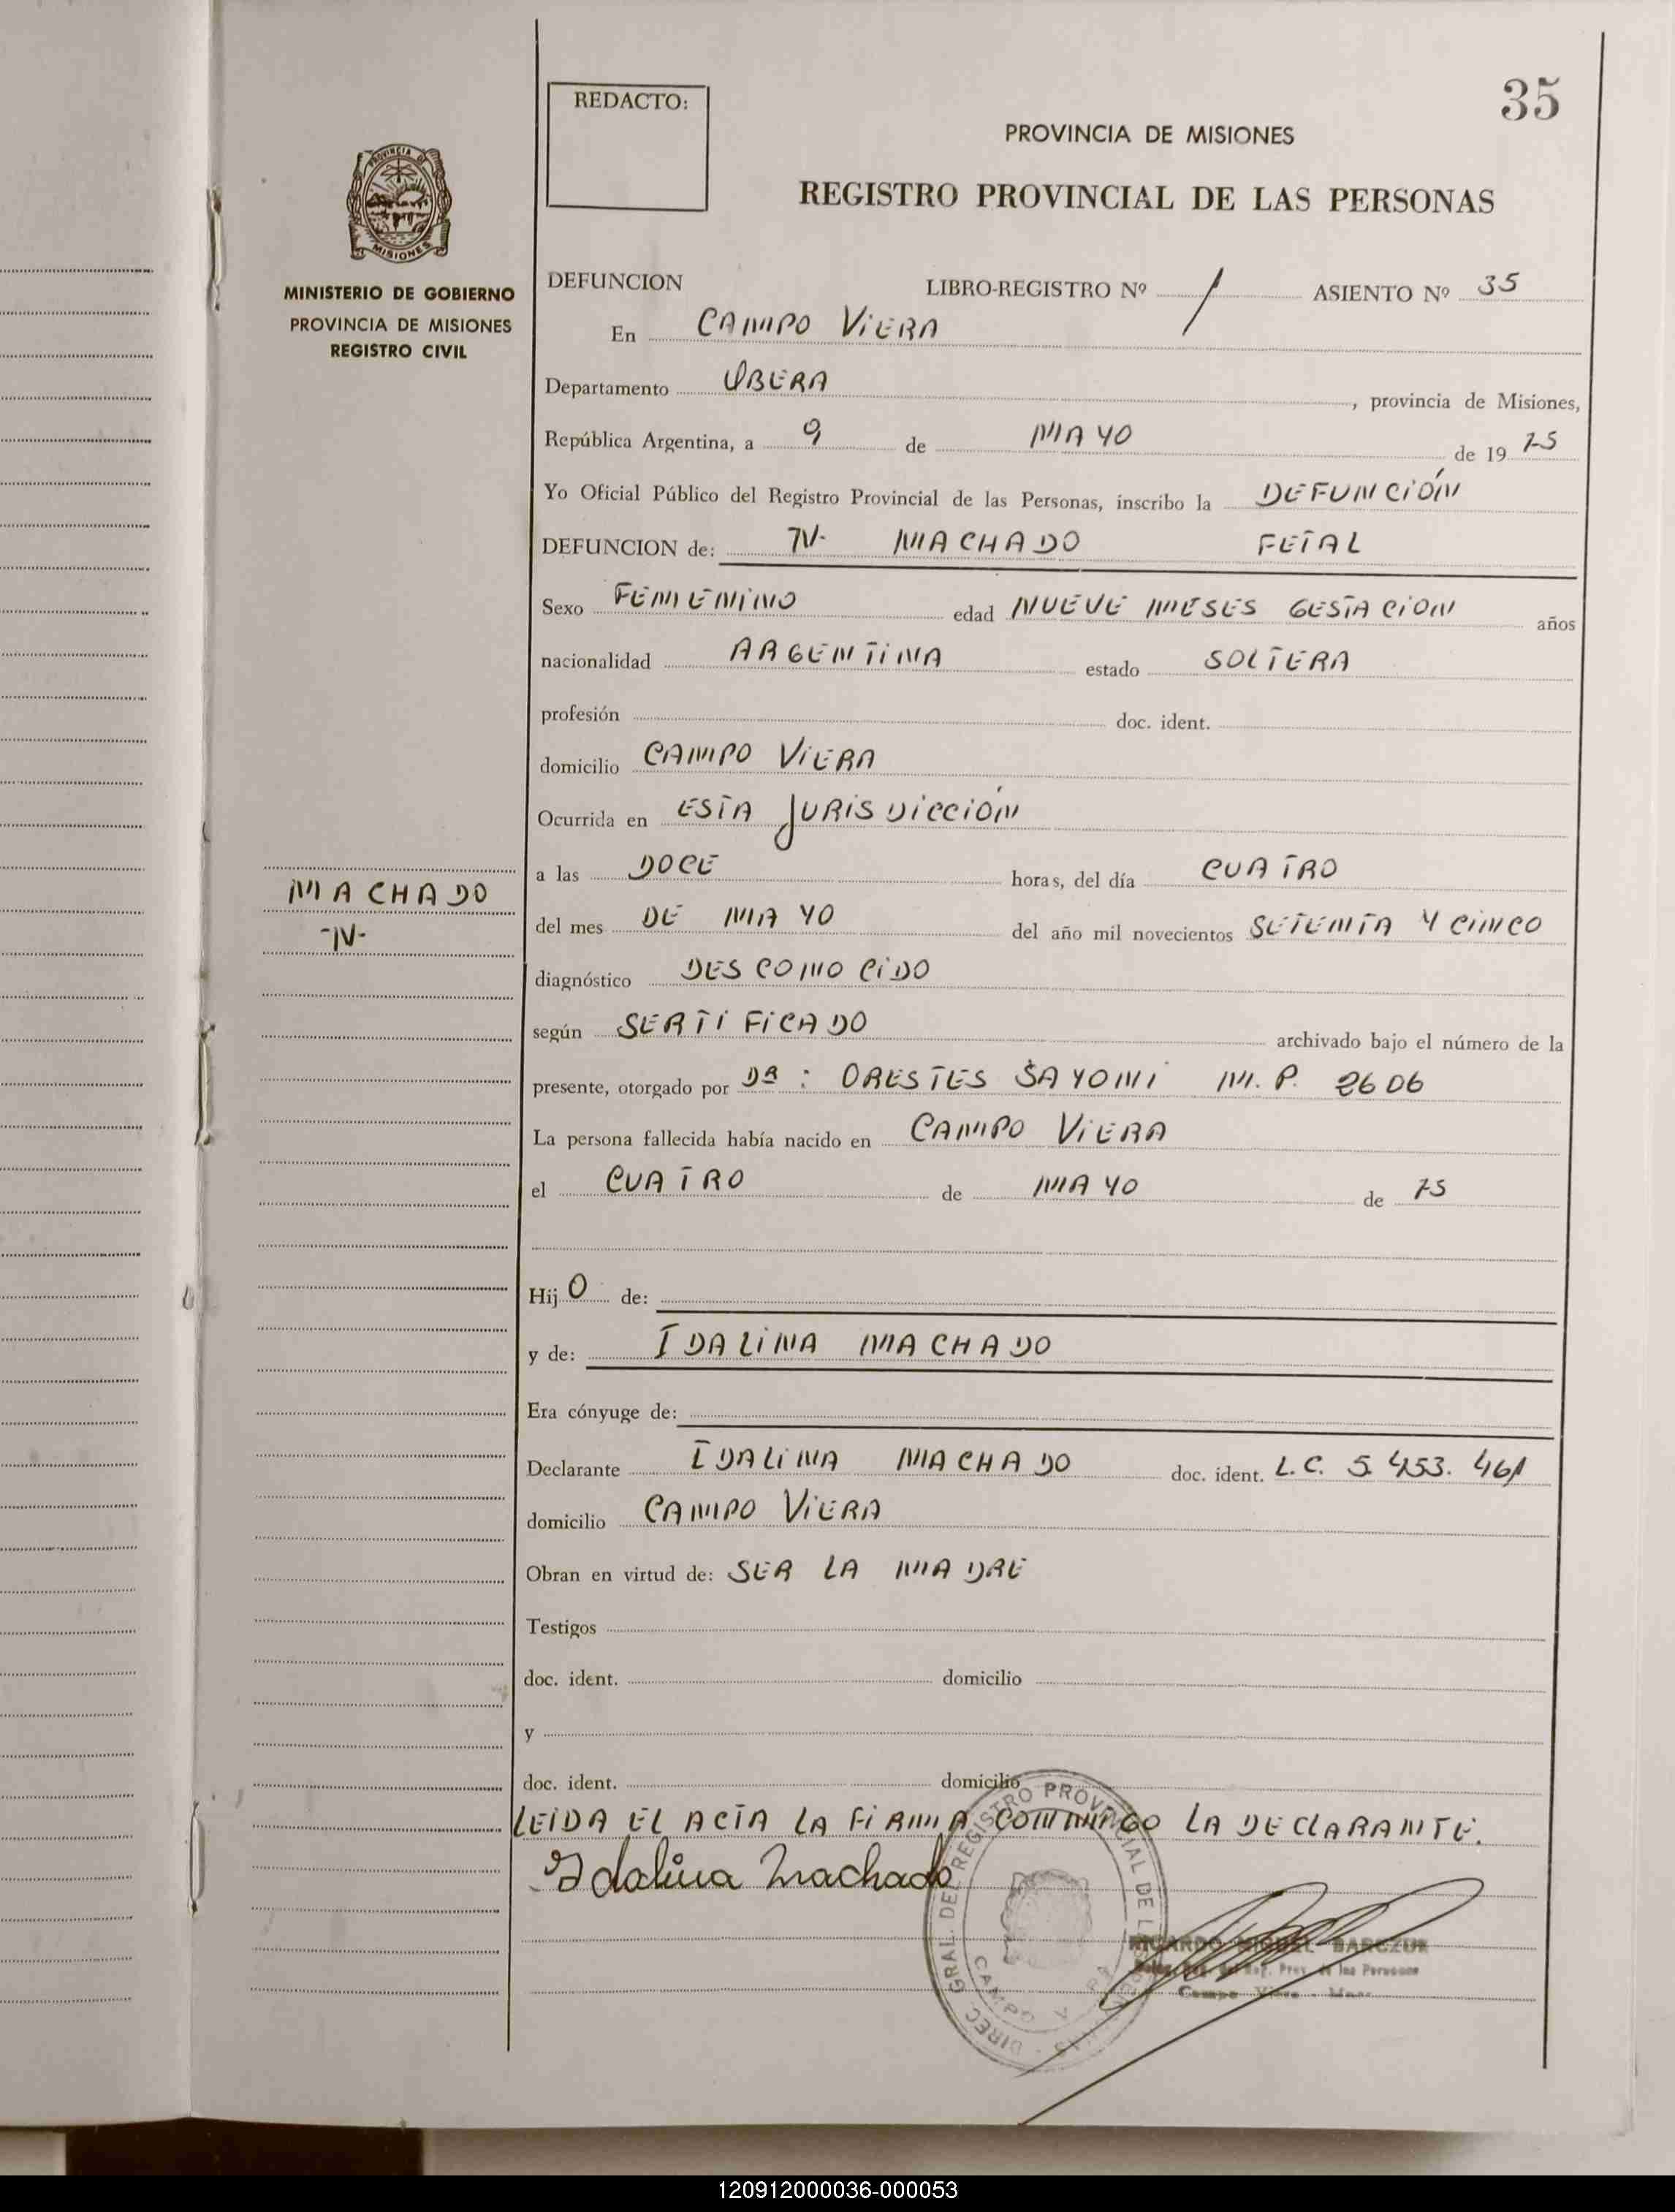 35
REDACTO:
PROVINCIA DE MISIONES
REGISTRO PROVINCIAL DE LAS PERSONAS
PROVINCIA DE
MISIONES
MINISTERIO DE GOBIERNO
PROVINCIA DE MISIONES
REGISTRO CIVIL
MACHADO
-N-
DEFUNCION LIBRO-REGISTRO Nº / ASIENTO Nº 35
En CAMPO VIERA
Departamento OBERA, provincia de Misiones,
República Argentina, a 9 de MAYO de 1975
Yo Oficial Público del Registro Provincial de las Personas, inscribo la DEFUNCIÓN
DEFUNCION de: N- MACHADO FETAL
Sexo FEMENINO edad NUEVE MESES GESTACION años
nacionalidad ARGENTINA estado SOLTERA
profesión doc. ident.
domicilio CAMPO VIERA
Ocurrida en ESTA JURISDICCIÓN
a las DOCE horas, del día CUATRO
del mes DE MAYO del año mil novecientos SETENTA Y CINCO
diagnóstico DESCONOCIDO
según SERTIFICADO archivado bajo el número de la
presente, otorgado por DR: ORESTES SAYONI M.P. 2606
La persona fallecida había nacido en CAMPO VIERA
el CUATRO de MAYO de 75
Hij O de:
y de: IDALINA MACHADO
Era cónyuge de:
Declarante IDALINA MACHADO doc. ident. L.C. 5.453.461
domicilio CAMPO VIERA
Obran en virtud de: SER LA MADRE
Testigos
doc. ident. domicilio
y
doc. ident. domicilio
LEIDA EL ACTA LA FIRMA CONMIGO LA DECLARANTE.
Idalina Machado
DIREC. GRAL. DEL REGISTRO PROVINCIAL DE LAS PERSONAS
CAMPO VIERA
RICARDO MIGUEL BARCZUK
Prov. de las Personas
Campo Viera - Mnes.
120912000036-000053